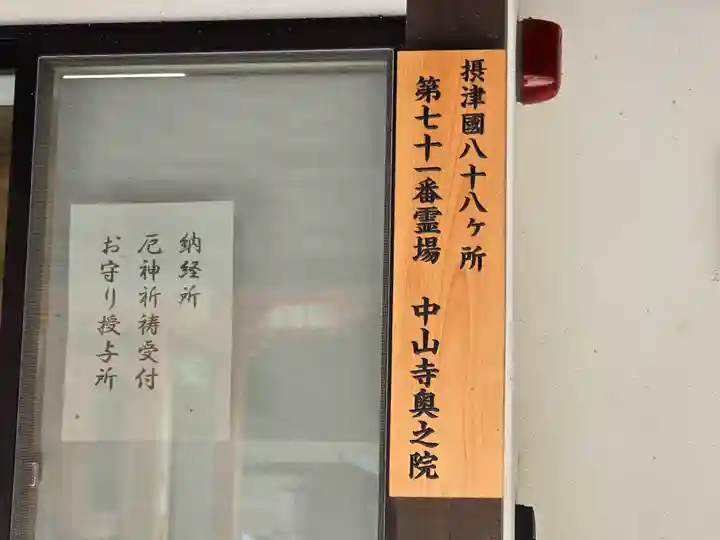 摂津國八十八ヶ所
第七十一番霊場 中山寺奥之院
納経所
厄神祈祷受付
お守り授与所